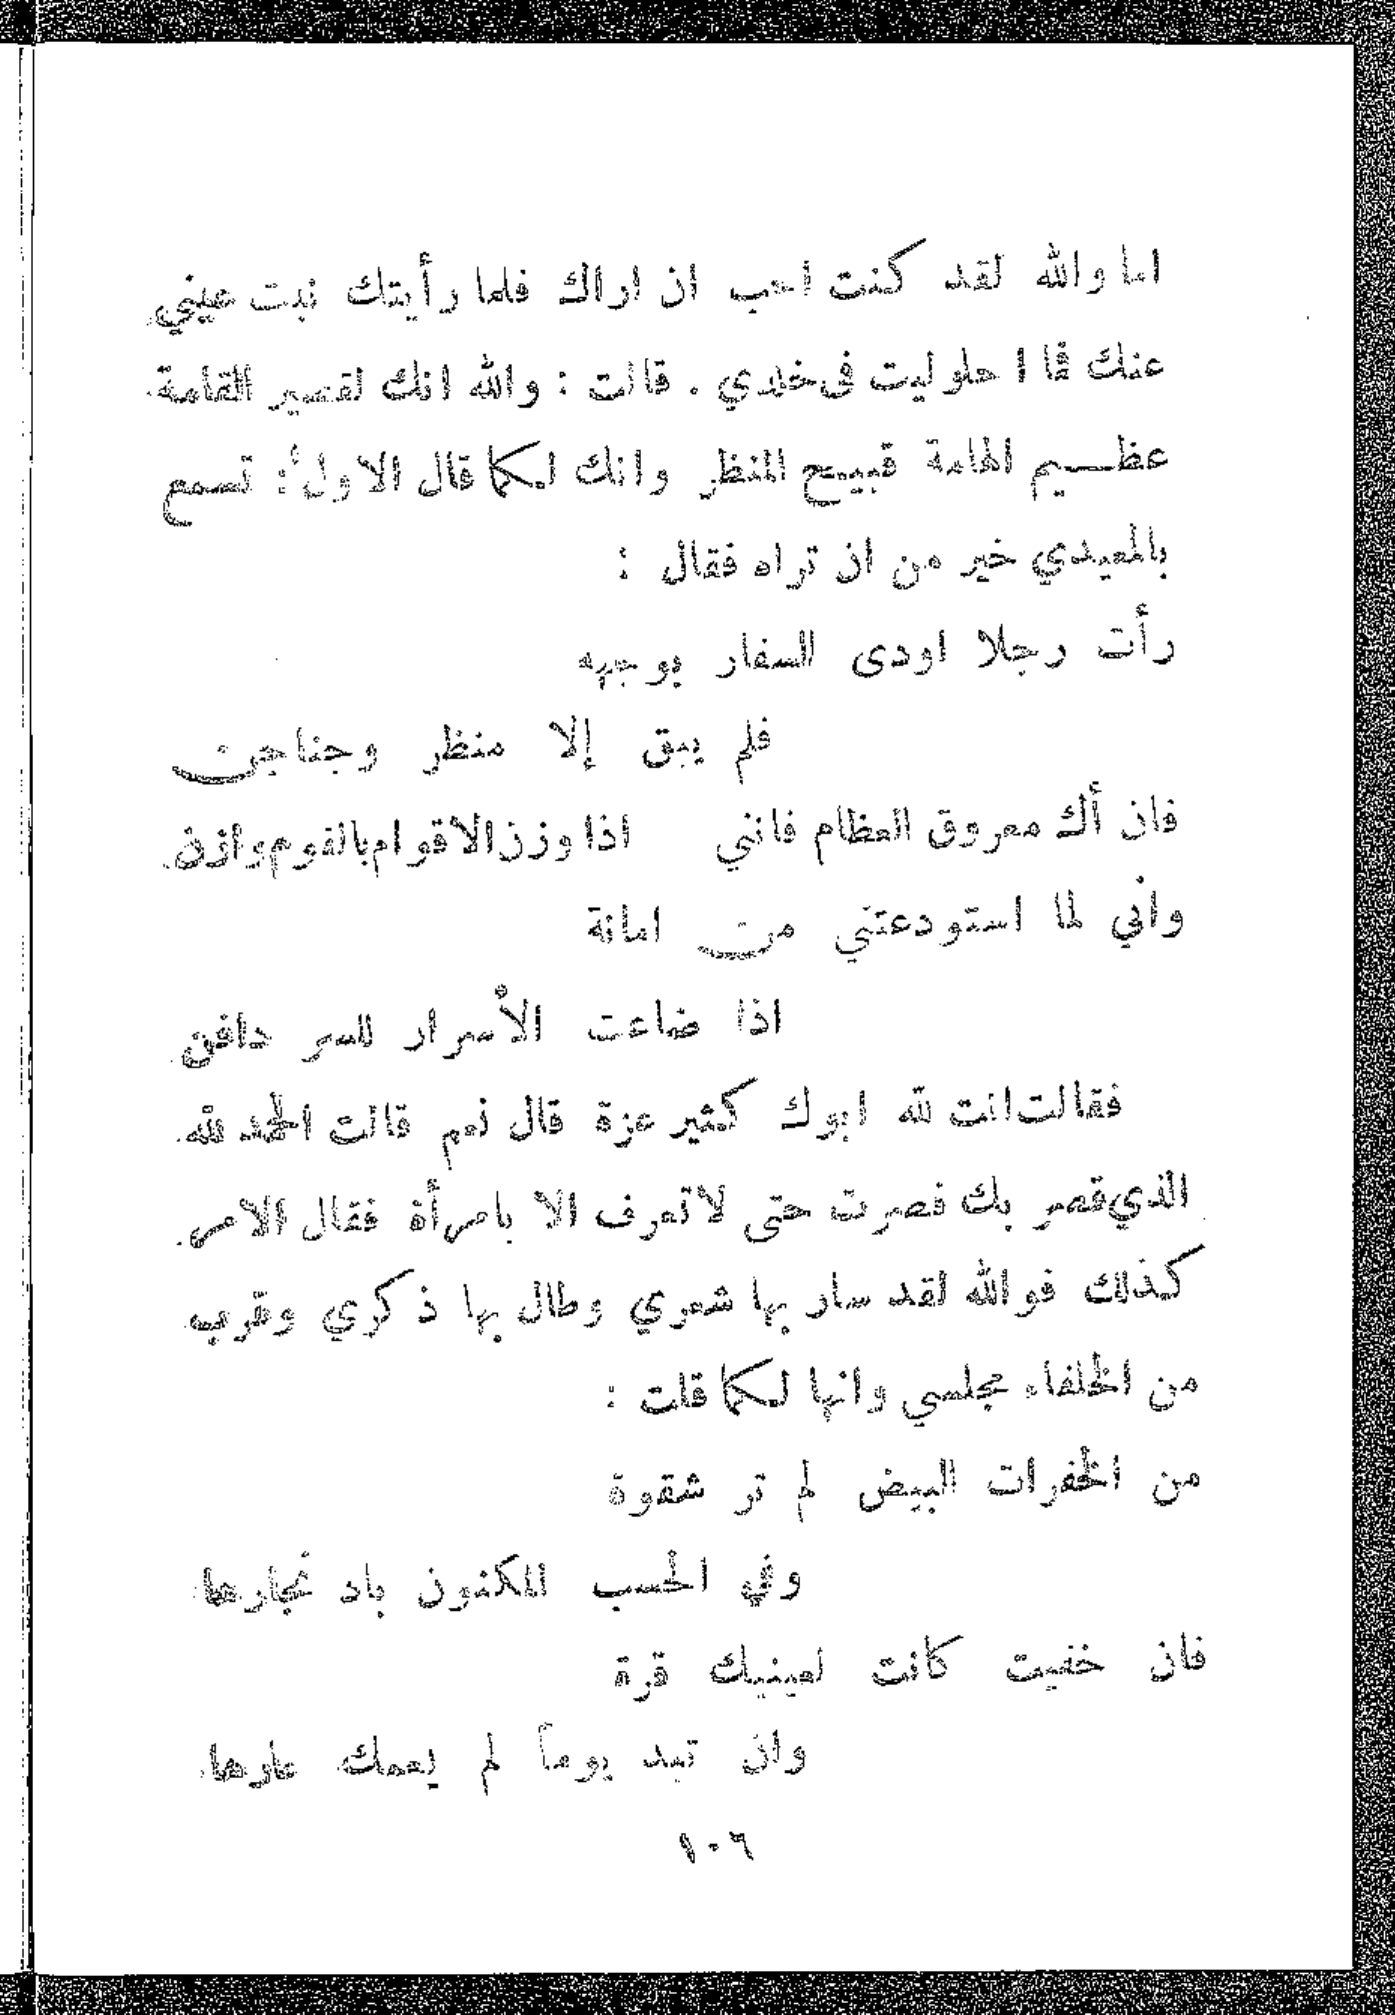 اما والله لقد كنت احب ان اراك فلما رأيتك نبت عيني
عنك فما احلوليت في خلدي . قالت : والله انك لقصير القامة
عظيم الهامة قبيح المنظر وانك لكما قال الاول : تسمع
بالمعيدي خير من ان تراه فقال :
رأت رجلا اودى السفار بوجهه
فلم يبق إلا منظر وجناجن
فان أك معروق العظام فانني اذا وزن الاقوام بالقوم وازن
واني لما استودعتني من امانة
اذا ضاعت الأسرار للسر دافن
فقالت انت لله ابوك كثير عزة قال نعم قالت الحمد لله
الذي قصر بك فصرت حتى لا تعرف الا بامرأة فقال الامر
كذلك فوالله لقد سار بها شعري وطال بها ذكري وقرب
من الخلفاء مجلسي وانها لكما قلت :
من الخفرات البيض لم تر شقوة
وفي الحسب المكنون باد نجارها
فان خفيت كانت لعينيك قرة
وان تبد يوماً لم يعمك عارها
١٠٦